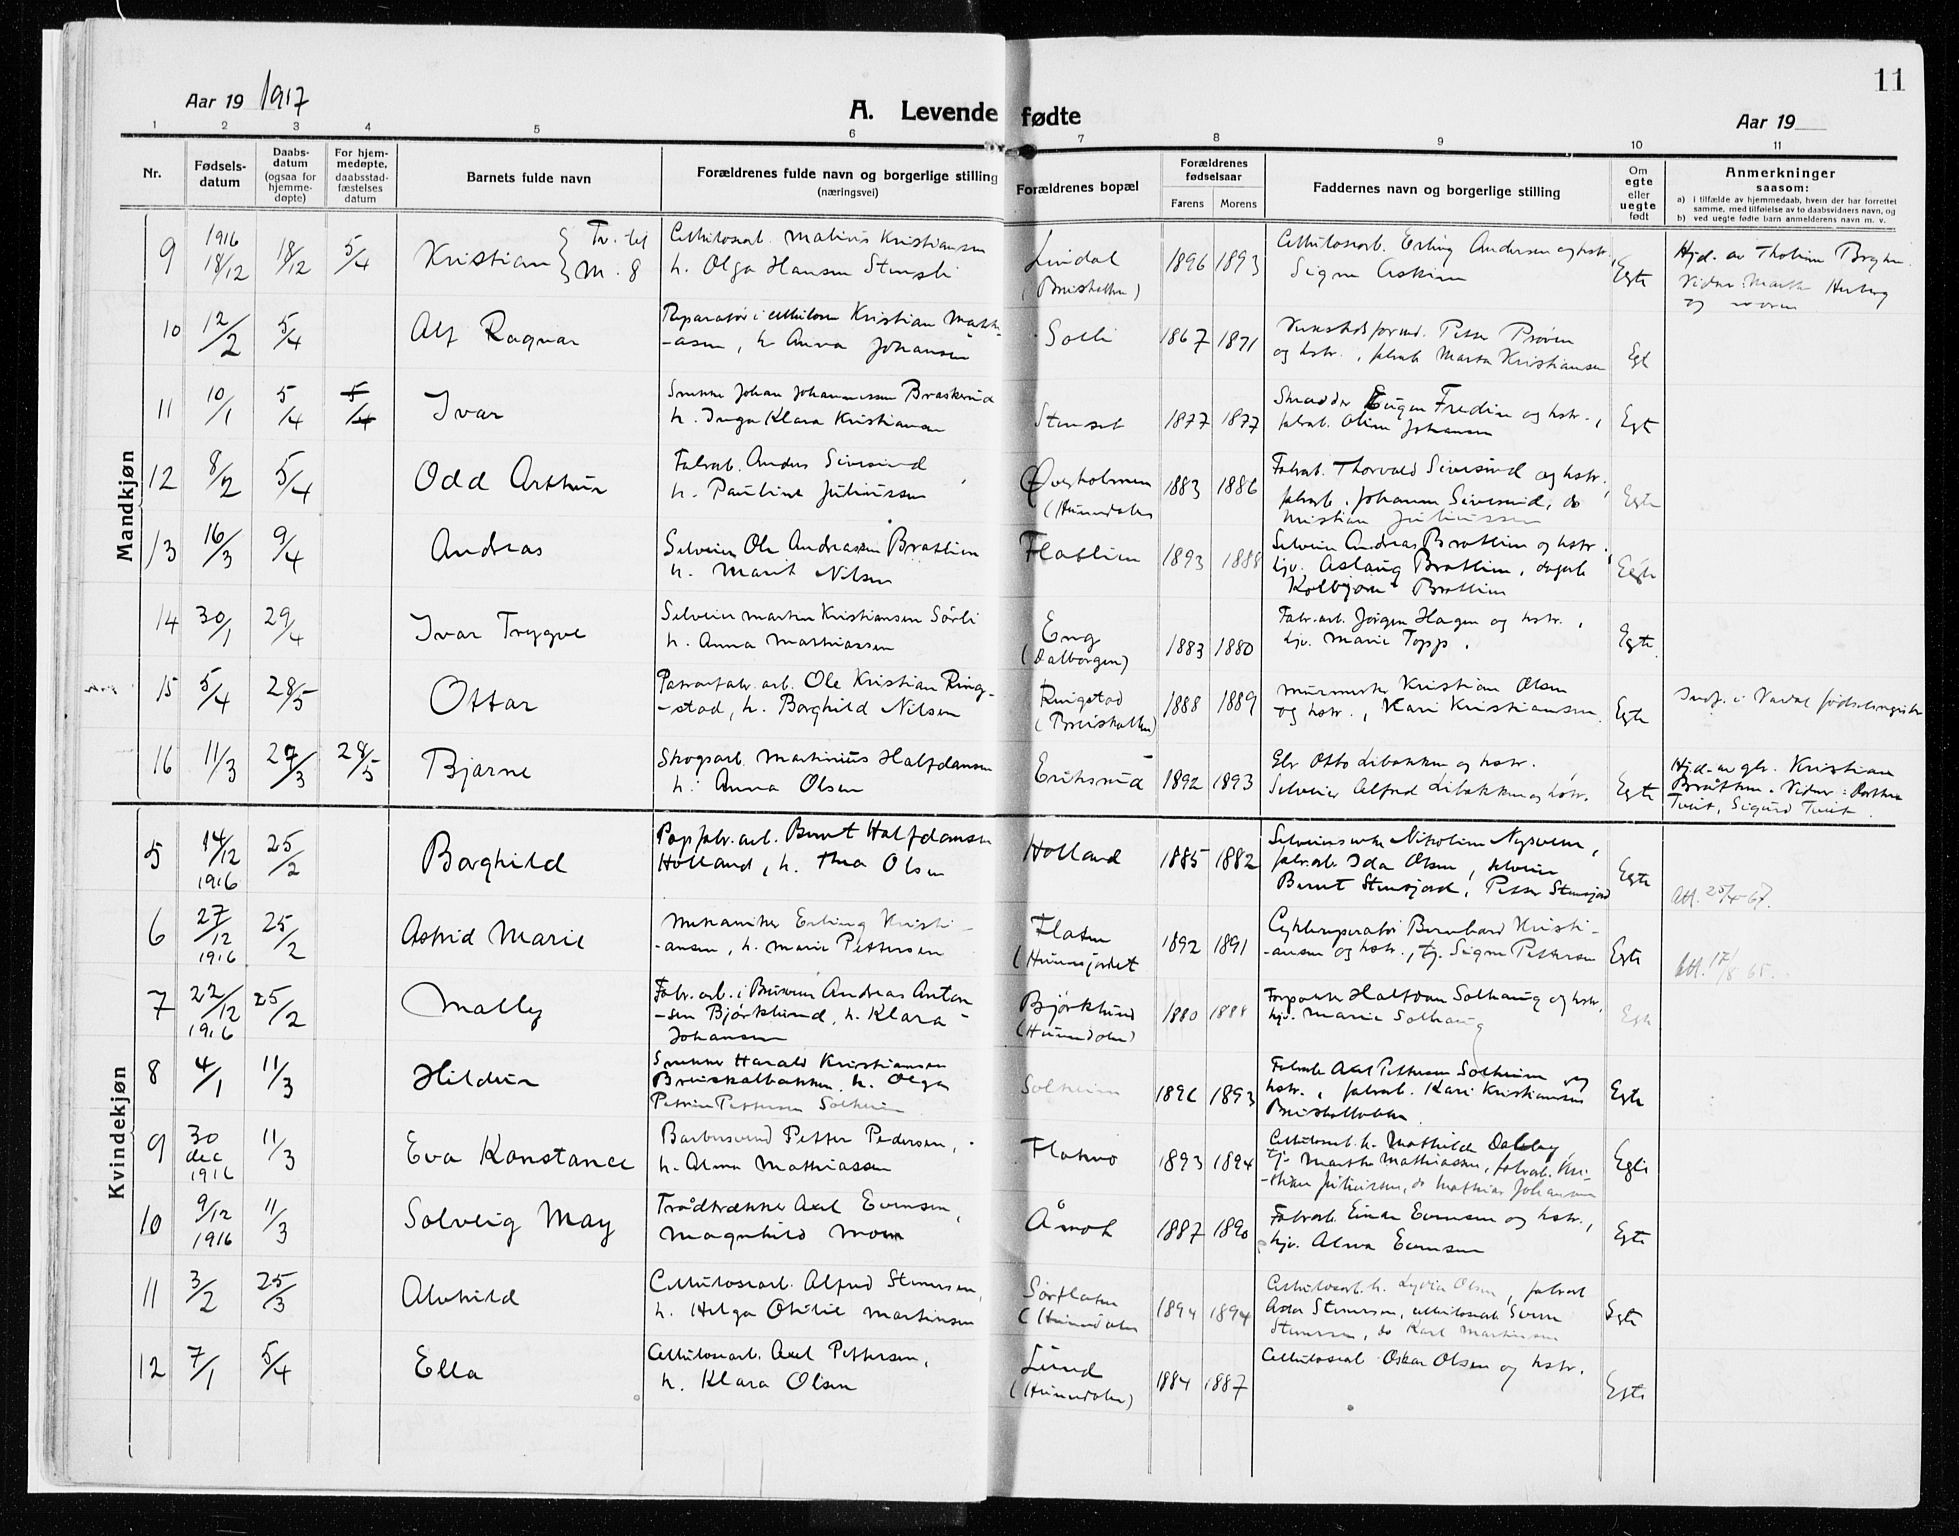 11
Aar 19 1917
A. Levende fødte
Aar 19
1 2 3 4 5 6 7 8 9 10 11
Nr.
Fødsels-
datum
Daabs-
datum
(ogsaa for
hjemme-
døpte)
For hjem-
medøpte,
daabsstad-
fæstelses
datum
Barnets fulde navn
Forældrenes fulde navn og borgerlige stilling
(næringsvei)
Forældrenes bopæl
Forældrenes
fødselsaar
Farens Morens
Faddernes navn og borgerlige stilling
Om
egte
eller
uegte
født
Anmerkninger
saasom:
a) i tilfælde av hjemmedaab, hvem der har forrettet
samme, med tilføielse av to daabsvidners navn, og
b) ved uegte fødte barn anmelderens navn m. v.
Mandkjøn
9 1916 18/12 18/12 5/4 Kristian Tv. til M. 8
Cellulosearb. Matinis Kristiansen
h. Olga Hansen Stensli
Lindal 1896 1893
(Breiskallen)
Cellulosearb. Erling Andersen og hstr.,
Signe Askim
Egte
Hjd. av Tholine
Vidner: Marthe
og moren
10 12/2 5/4 Alf Ragnar
Reparatør i cellulosen Kristian Math-
-asen, h. Anna Johansen
Solli 1867 1871
Verkstedsformd. Petter Prøven
og hstr., fabrarb. Marta Kristiansen
Egt
11 10/1 5/4 5/4 Ivar
Smed Johan Johannessen Braskerud
h. Inga Klara Kristiansen
Stenset 1877 1877
Skrædder Eugen Fredin og hstr.,
fabrarb. Oline Johansen
Egt
12 8/2 5/4 Odd Arthur
Fabrarb. Anders Sivesind
h. Pauline Juliussen
Øverholmen 1883 1886
(Hunndalen
Fabrarb. Thorvald Sivesind og hstr.,
fabrarb. Johannes Sivesind, do
Kristian Juliussen
Egte
13 16/3 9/4 Andreas
Selveier Ole Andreassen Bratlien
h. Marit Nilsen
Flatlien 1893 1888
Selveier Andreas Bratlien og hstr.,
hjv. Aslaug Bratlien,
Kolbjørn Bratlien
Egte
14 30/1 29/4 Ivar Trygve
Selveier Martin Kristiansen Sørli
h. Anna Mathiassen
Eng 1883 1880
(Dalborgen)
Fabr.arb. Jørgen Hagen og hstr.,
hjv. Marie Topp.
Egte
15 5/4 28/5 Ottar
Patronfabr.arb. Ole Kristian Ring-
-stad, h. Borghild Nilsen
Ringstad 1888 1889
(Breiskallen)
Murmester Kristian Olsen
og hstr., Kari Kristiansen
Egte
Indf. i Vardal fødselsregister
16 11/3 27/3 28/5 Bjarne
Skogsarb. Martinius Halfdansen
h. Anna Olsen
Eriksrud 1892 1893
Gbr Otto Libakken og hstr.
Selveier Alfred Libakken og hstr.
Egte
Hjd. av gbr. Kristian
Bråtten. Vidner: Dorthea
Tveit, Sigurd Tveit.
Kvindekjøn
5 14/12 1916 25/2 Borghild
Papfabr.arb. Bernt Halfdansen
Holland, h. Thea Olsen
Holland 1885 1882
Selveierenke Nikoline Nysveen,
fabrarb Ida Olsen, selveier
Bernt Stensjord, Petter Stensjord
Egte
Att. 25/4-67.
6 27/12 1916 25/2 Astrid Marie
Mekaniker Erling Kristi-
-ansen, h. Marie Pettersen
Flaten 1892 1891
(Hunnsjordet
Cyklereperatør Bernhard Kristi-
-ansen og hstr., tj. Signe Pettersen
Egte
Att. 17/8 65.
7 22/12 1916 25/2 Mally
Fabr.arb. i Bruvern Andreas Anton-
-sen Bjørklund, h. Klara
Johansen
Bjørklund 1880 1888
(Hunndalen)
Forpakter Halfdan Solhaug og hstr.,
hjv. Marie Solhaug
Egte
8 4/1 11/3 Hildur
Snekker Harald Kristiansen
Breiskalbakken h. Olga
Petrine Pettersen Solheim
Solheim 1896 1893
Fabrarb Axel Pettersen Solheim og
hstr., fabrarb. Kari Kristiansen
Breiskalbakken
Egte
9 30 dec 1916 11/3 Eva Konstance
Barbersvend Petter Pedersen,
h. Alma Mathiassen
Flatmo 1893 1894
Cellulosearb. h. Mathilde Dalby,
tj. Marthe Mathiassen, fabrarb. Kri-
-stian Juliussen, do Mathias Johansen
Egte
10 9/12 1916 11/3 Solveig May
Trådtrækker Axel Evensen,
Magnhild Moen
Åmot 1887 1890
Fabrarb. Einar Evensen og hstr.,
hjv. Alma Evensen
Egte
11 3/2 25/3 Alvhild
Cellulosearb. Alfred Stenersen,
h. Helga Otilie Martinsen
Sørflaten 1894 1894
(Hunndalen
Cellulosearb. h. Lydia Olsen, fabrarb
Asta Stenersen, cellulosearb Sverre
Stenersen, do Karl Martinsen
Egte
12 7/1 5/4 Ella
Cellulosearb. Axel Pettersen,
h. Klara Olsen
Lund 1884 1887
(Hunndalen)
Cellulosearb Oskar Olsen og hstr.
Egte